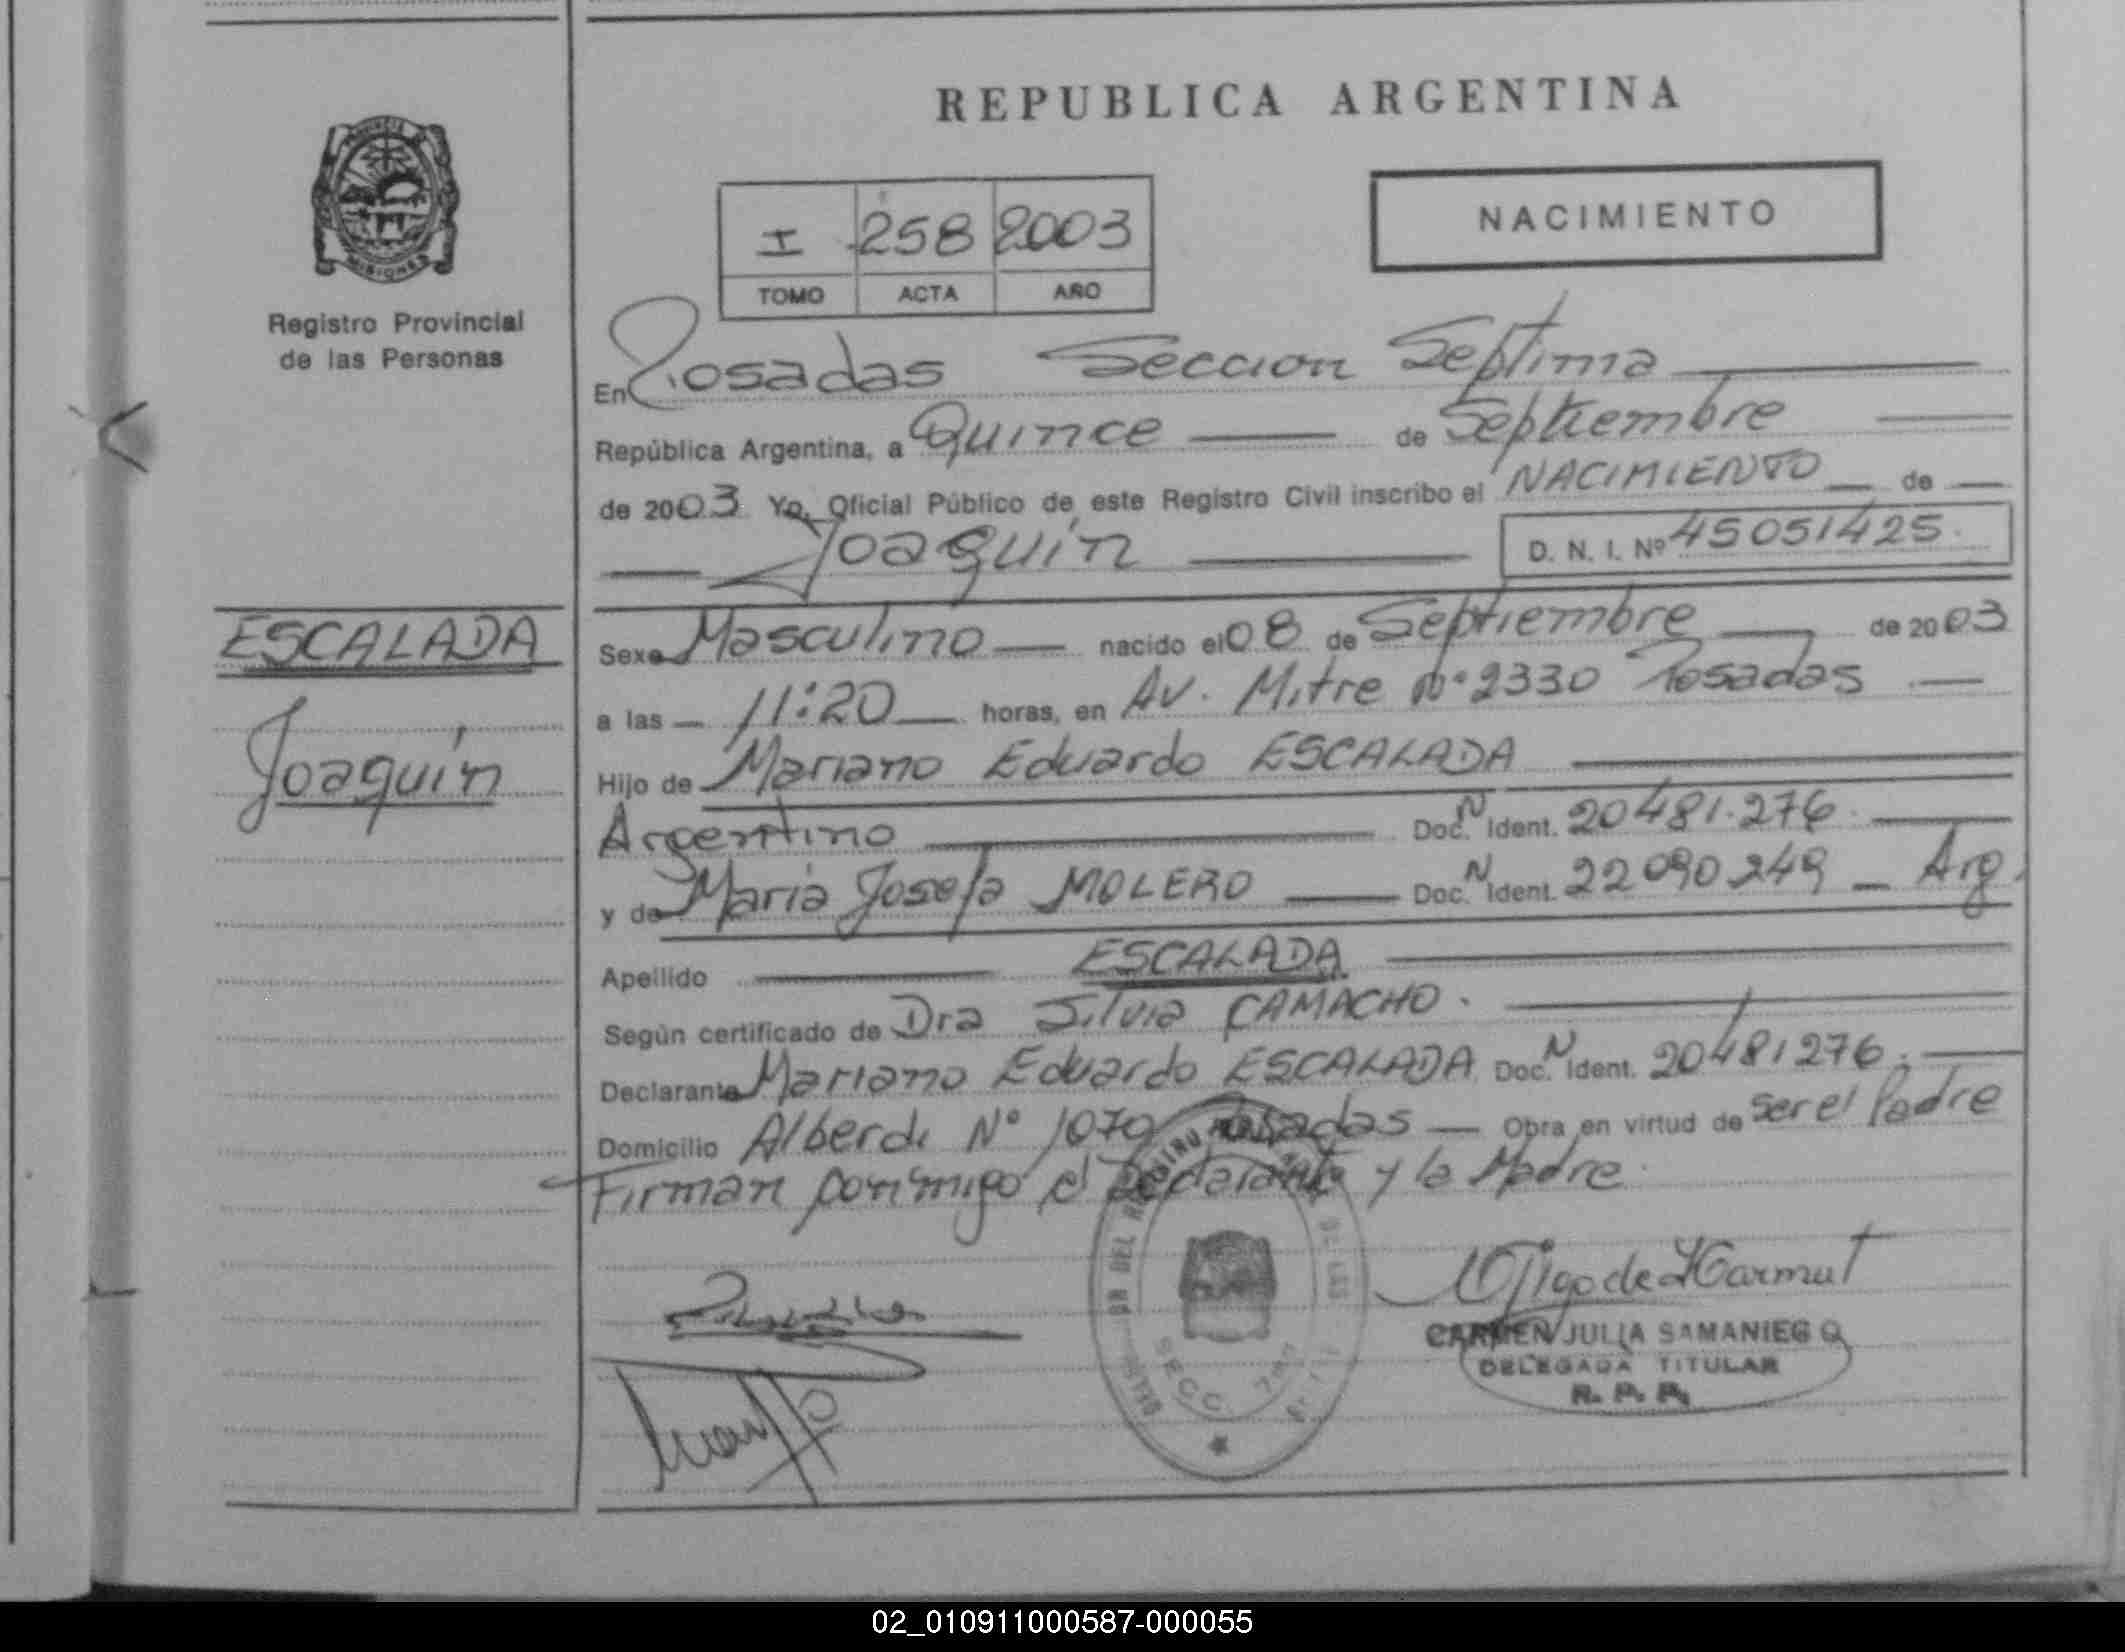 REPUBLICA ARGENTINA
PROVINCIA DE
MISIONES
Registro Provincial
de las Personas
I 258 2003
TOMO ACTA AÑO
NACIMIENTO
En Posadas Seccion Septima
República Argentina, a Quince de Septiembre
de 2003 Yo, Oficial Público de este Registro Civil inscribo el NACIMIENTO de
Joaquín D. N. I. Nº 45051425.
ESCALADA
Joaquín
Sexo Masculino nacido el 08 de Septiembre de 2003
a las 11:20 horas, en Av. Mitre Nº 2330 Posadas
Hijo de Mariano Eduardo ESCALADA
Argentino Doc. N Ident. 20481.276.
y de María Josefa MOLERO Doc. N Ident. 22090249 Arg.
Apellido ESCALADA
Según certificado de Dra Silvia CAMACHO.
Declarante Mariano Eduardo ESCALADA Doc. N Ident. 20481276.
Domicilio Alberdi Nº 1070 Posadas Obra en virtud de ser el Padre
Firman conmigo el Declarante y la Madre.
CARMEN JULIA SAMANIEGO
DELEGADA TITULAR
R. P. P.
SECC. 7ma
02_010911000587-000055